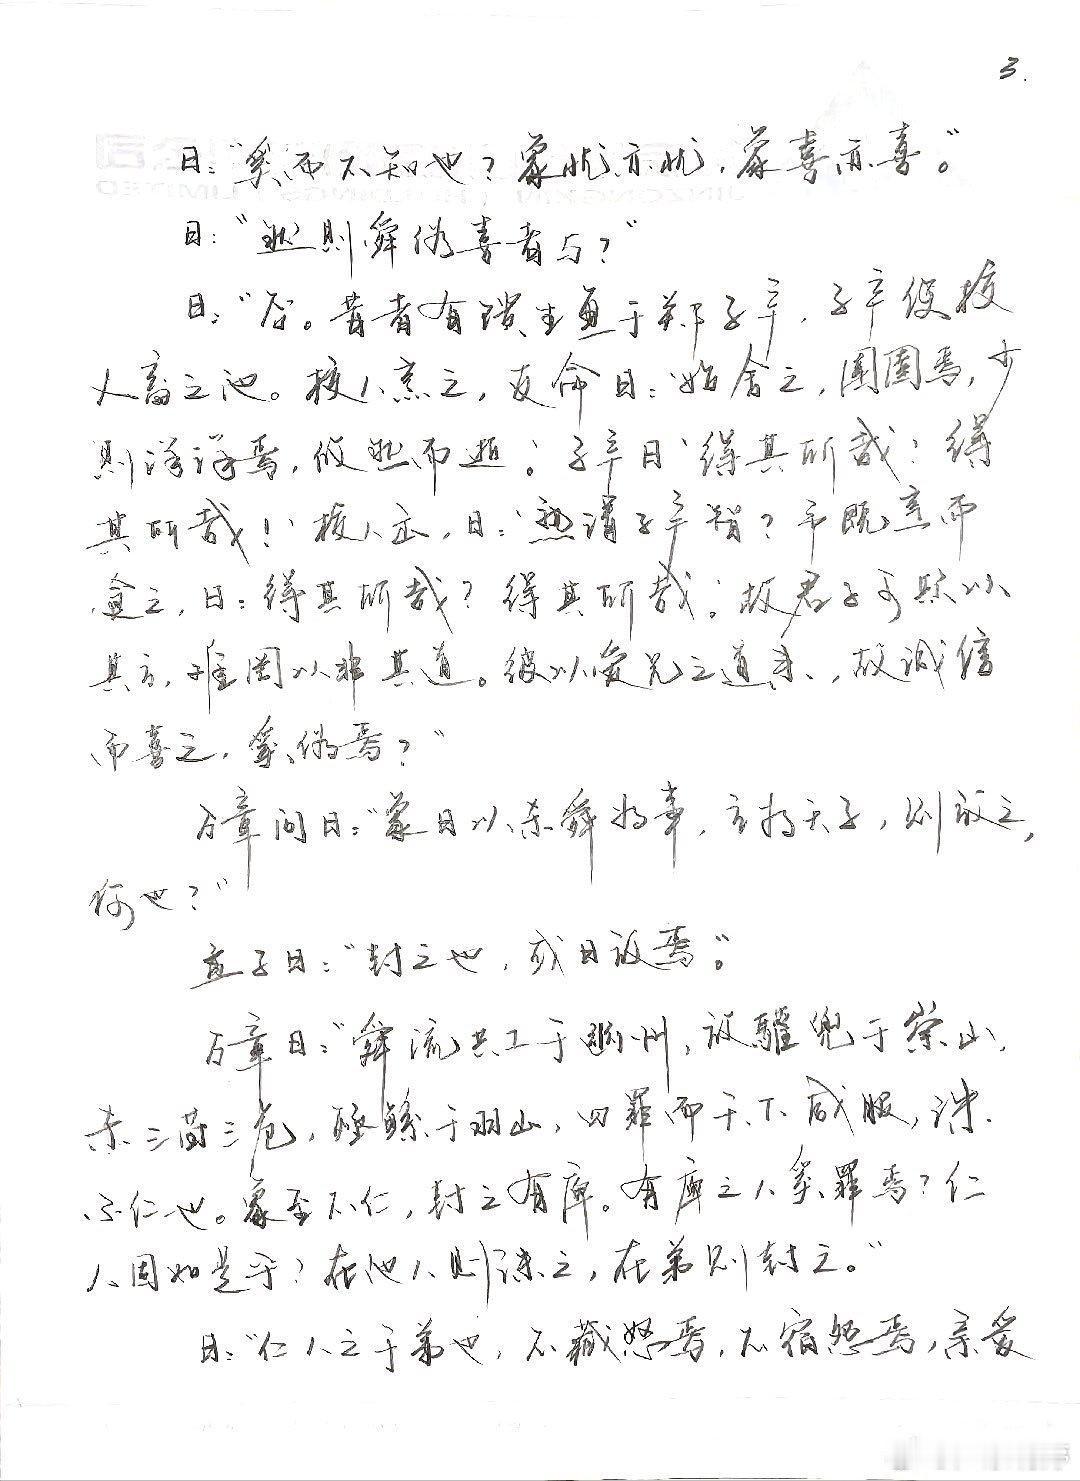 3.
曰：“奚而不知也？象忧亦忧，象喜亦喜。”
曰：“然则舜伪喜者与？”
曰：“否。昔者有馈生鱼于郑子产，子产使校
人畜之池。校人烹之，反命曰：‘始舍之，圉圉焉，少
则洋洋焉，攸然而逝。’子产曰‘得其所哉！得
其所哉！’校人出，曰：‘孰谓子产智？予既烹而
食之，曰：得其所哉？得其所哉。’故君子可欺以
其方，难罔以非其道。彼以爱兄之道来，故诚信
而喜之，奚伪焉？”
万章问曰：“象日以杀舜为事，立为天子，则放之，
何也？”
孟子曰：“封之也，或曰放焉。”
万章曰：“舜流共工于幽州，放驩兜于崇山，
杀三苗三危，殛鲧于羽山，四罪而天下咸服，诛
不仁也。象至不仁，封之有庳。有庳之人奚罪焉？仁
人固如是乎？在他人则诛之，在弟则封之。”
曰：“仁人之于弟也，不藏怒焉，不宿怨焉，亲爱